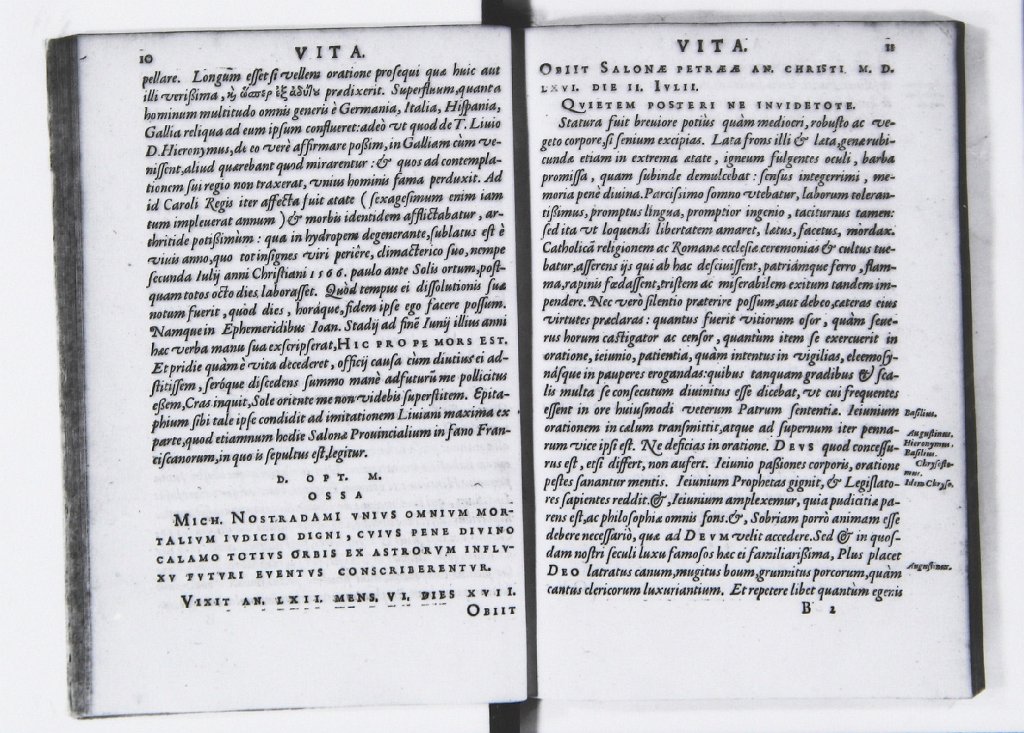 10 VITA.
pellare. Longum esset si vellem oratione prosequi quæ huic aut
illi verißima, ϗ̀ ὥσπερ ἐξ ἀδύτȣ prædixerit. Superfluum, quanta
hominum multitudo omnis generis è Germania, Italia, Hispania,
Gallia reliqua ad eum ipsum conflueret: adeò vt quod de T. Liuio
D. Hieronymus, de eo verè affirmare poßim, in Galliam cùm ve-
nissent, aliud quærebant quod mirarentur: & quos ad contempla-
tionem sui regio non traxerat, vnius hominis fama perduxit. Ad
id Caroli Regis iter affecta fuit ætate ( sexagesimum enim iam
tum impleuerat annum ) & morbis identidem afflictabatur, ar-
thritide potißimùm: qua in hydropem degenerante, sublatus est è
viuis anno, quo tot insignes viri periêre, climacterico suo, nempe
secunda Iulij anni Christiani 1566. paulo ante Solis ortum, post-
quam totos octo dies laborasset. Quòd tempus ei dissolutionis suæ
notum fuerit, quòd dies, horáque, fidem ipse ego facere possum.
Namque in Ephemeridibus Ioan. Stadij ad finē Iunij illius anni
hæc verba manu sua exscripserat, HIC PROPE MORS EST.
Et pridie quàm è vita decederet, officij causa cùm diutius ei ad-
stitissem, seróque discedens summo manè adfuturū me pollicitus
eßem, Cras inquit, Sole oriente me non videbis superstitem. Epita-
phium sibi tale ipse condidit ad imitationem Liuiani maxima ex
parte, quod etiamnum hodie Salonæ Prouincialium in fano Fran-
ciscanorum, in quo is sepultus est, legitur.
D. OPT. M.
OSSA
MICH. NOSTRADAMI VNIVS OMNIVM MOR-
TALIVM IVDICIO DIGNI, CVIVS PENE DIVINO
CALAMO TOTIVS ORBIS EX ASTRORVM INFLV-
XV FVTVRI EVENTVS CONSCRIBERENTVR.
VIXIT AN. LXII. MENS. VI. DIES XVII.
OBIIT
VITA. 11
OBIIT SALONÆ PETRÆÆ AN. CHRISTI M. D.
LXVI. DIE II. IVLII.
QVIETEM POSTERI NE INVIDETOTE.
Statura fuit breuiore potiùs quàm mediocri, robusto ac ve-
geto corpore, si senium excipias. Lata frons illi & læta, genæ rubi-
cundæ etiam in extrema ætate, igneum fulgentes oculi, barba
promissa, quam subinde demulcebat: sensus integerrimi, me-
moria penè diuina. Parcissimo somno vtebatur, laborum toleran-
tißimus, promptus lingua, promptior ingenio, taciturnus tamen:
sed ita vt loquendi libertatem amaret, lætus, facetus, mordax.
Catholicā religionem ac Romanæ ecclesiæ ceremonias & cultus tue-
batur, asserens ijs qui ab hac desciuissent, patriámque ferro, flam-
ma, rapinis fœdassent, tristem ac miserabilem exitum tandem im-
pendere. Nec verò silentio præterire possum, aut debeo, cæteras eius
virtutes præclaras: quantus fuerit vitiorum osor, quàm seue-
rus horum castigator ac censor, quantùm item se exercuerit in
oratione, ieiunio, patientia, quàm intentus in vigilias, eleemosy-
násque in pauperes erogandas: quibus tanquam gradibus & sca-
lis multa se consecutum diuinitus esse dicebat, vt cui frequentes
essent in ore huiusmodi veterum Patrum sententiæ. Ieiunium
orationem in cælum transmittit, atque ad supernum iter penna-
rum vice ipsi est. Ne deficias in oratione. DEVS quod concessu-
rus est, etsi differt, non aufert. Ieiunio paßiones corporis, oratione
pestes sanantur mentis. Ieiunium Prophetas gignit, & Legislato-
res sapientes reddit. &, Ieiunium amplexemur, quia pudicitiæ pa-
rens est, ac philosophiæ omnis fons. &, Sobriam porrò animam esse
debere necessariò, quæ ad DEVM velit accedere. Sed & in quos-
dam nostri seculi luxu famosos hæc ei familiarißima, Plus placet
DEO latratus canum, mugitus boum, grunnitus porcorum, quàm
cantus clericorum luxuriantium. Et repetere libet quantùm egenis
B 2
Basilius.
Augustinus.
Hieronymus.
Basilius.
Chrysosto-
mus.
Idem Chryso.
Augustinus.